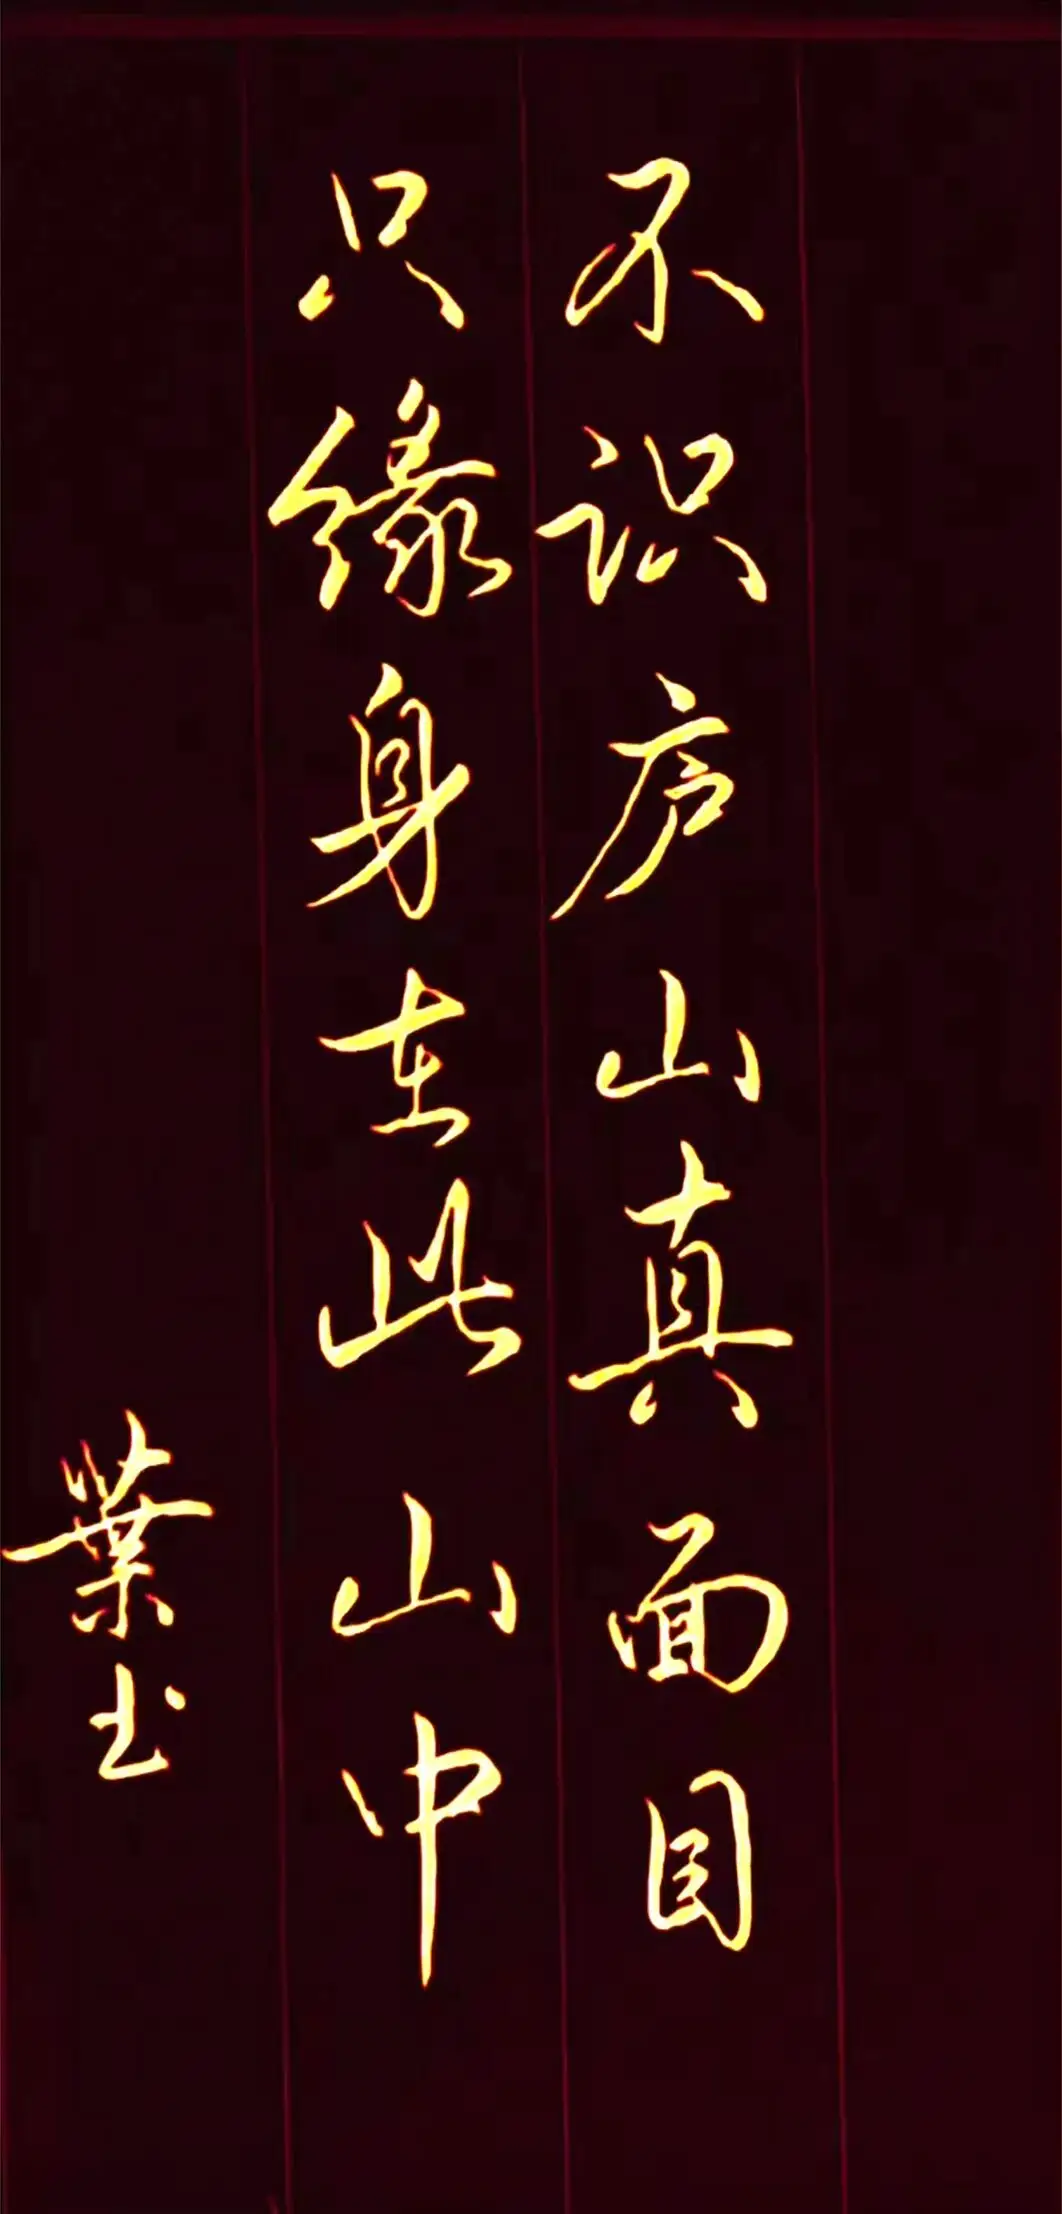 不识庐山真面目
只缘身在此山中
葉书